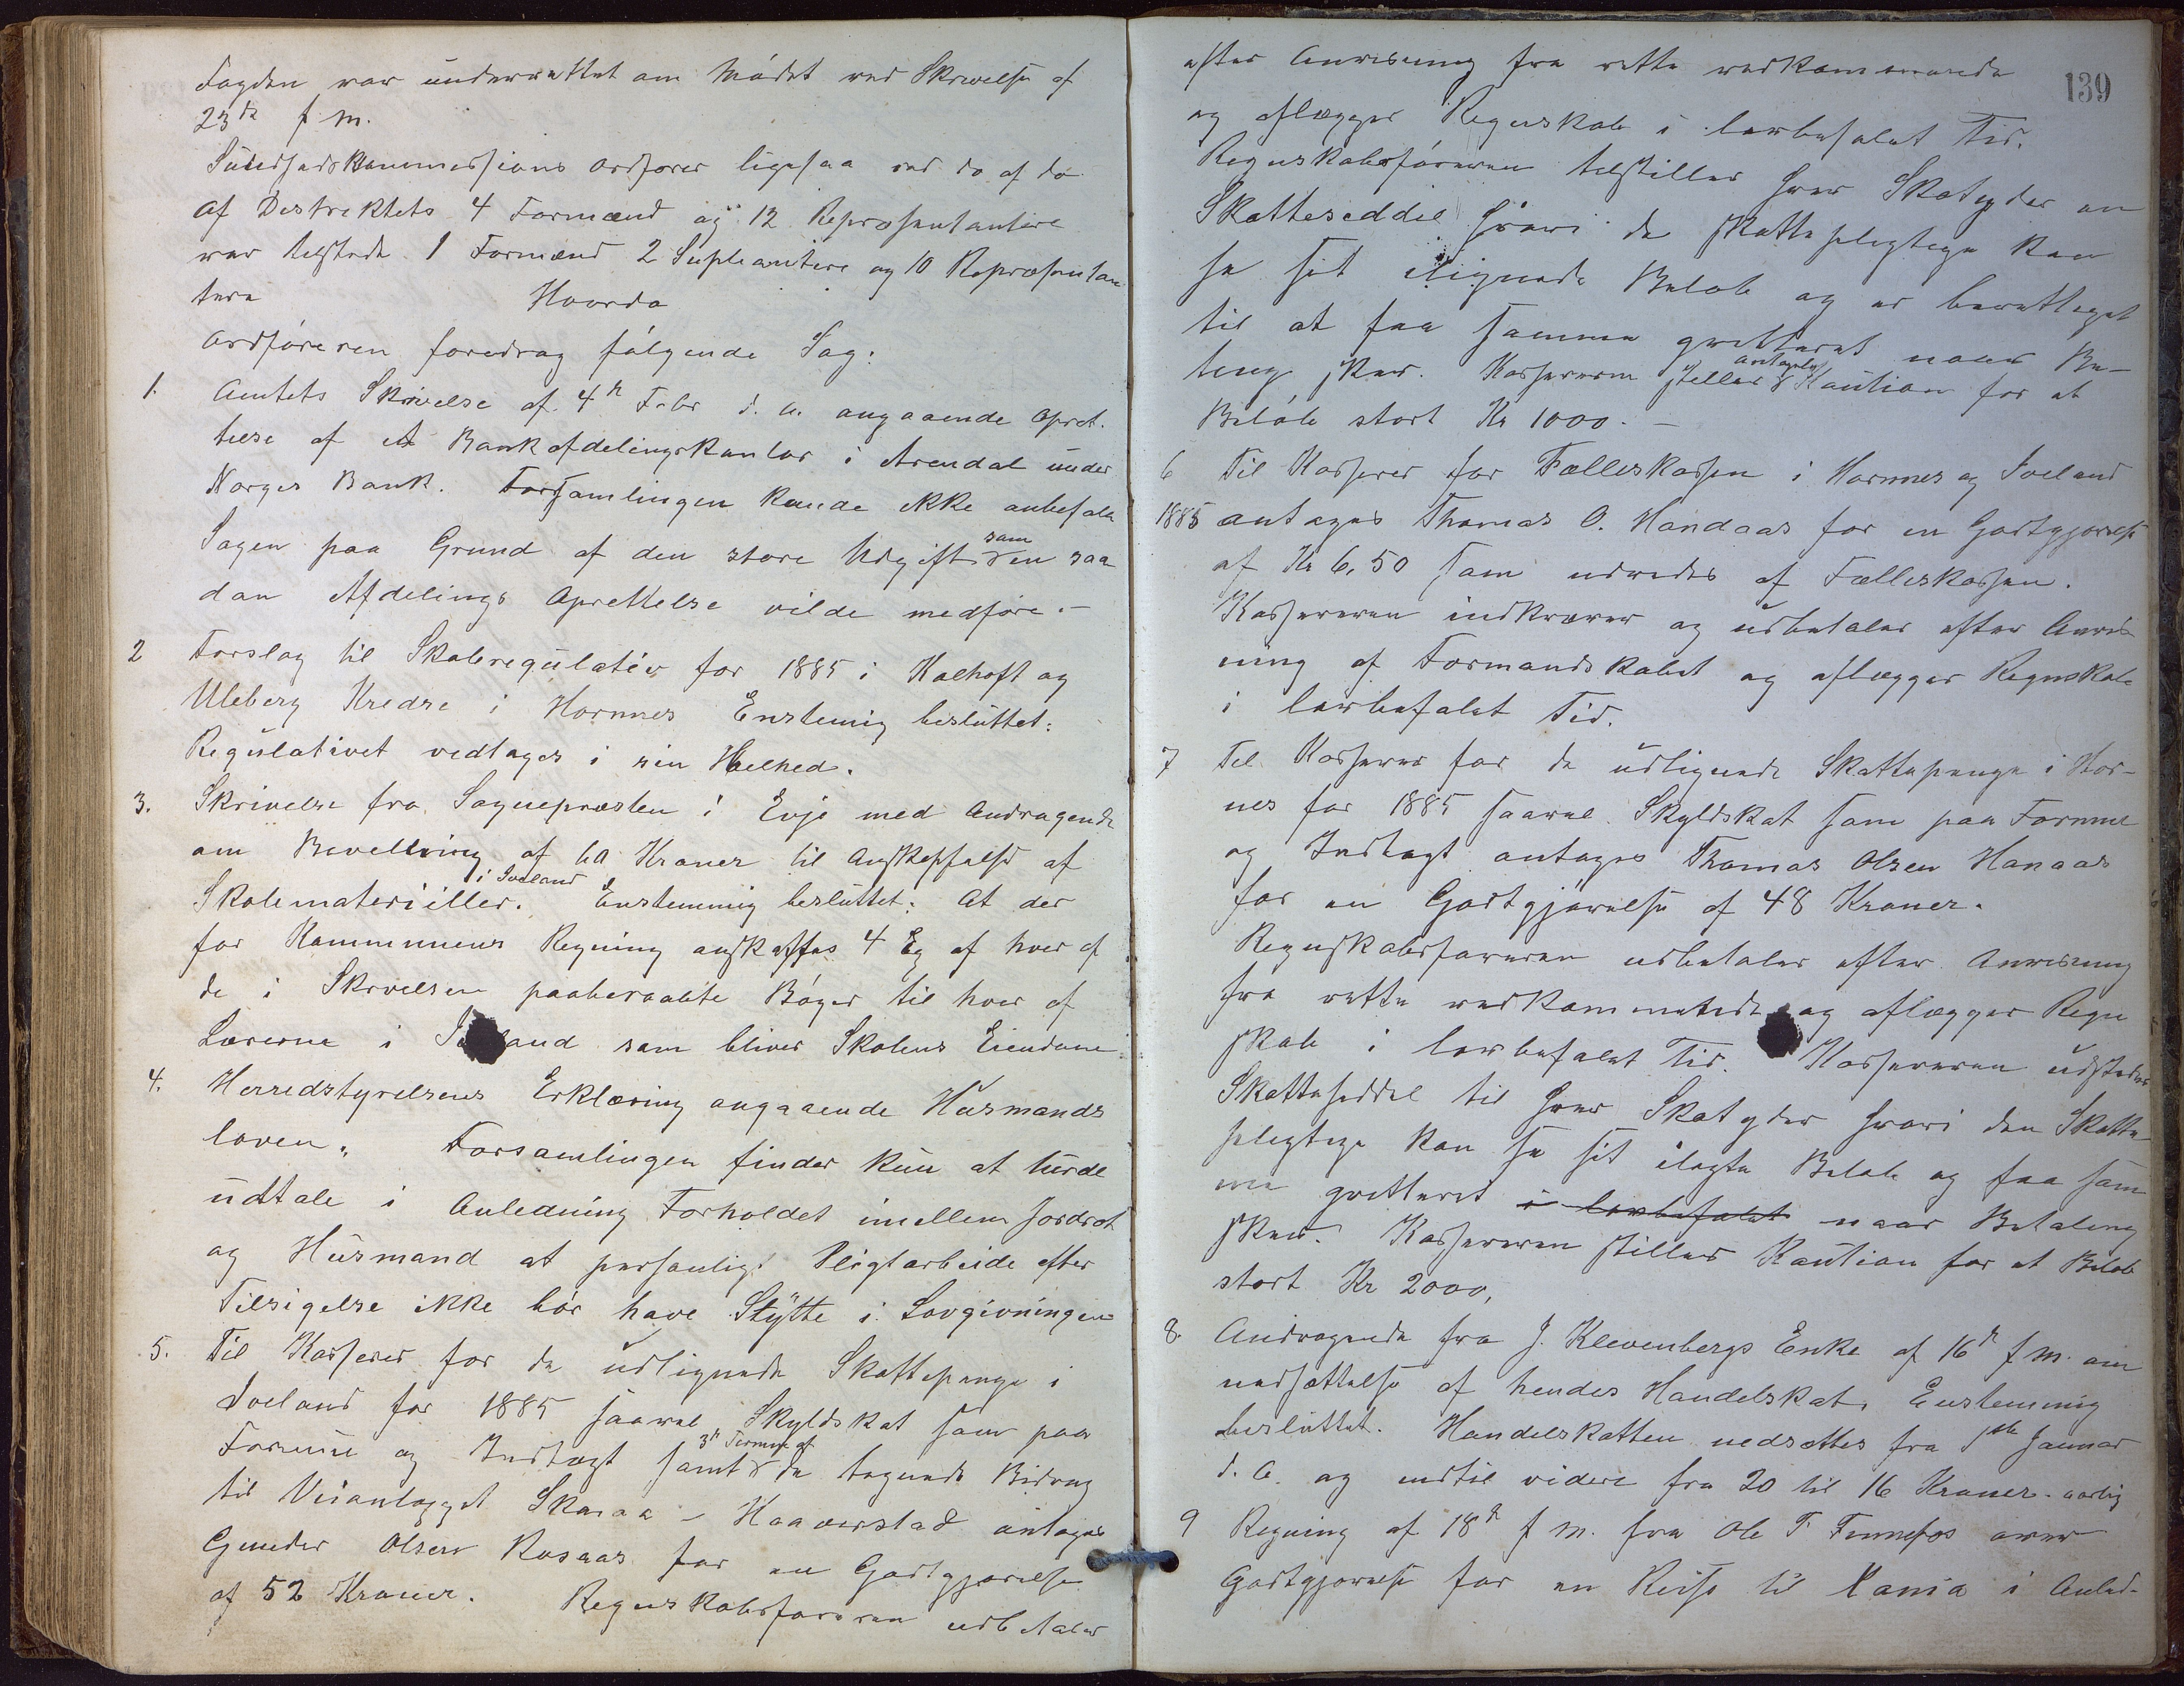 Fogden var underrettet om Mödet ved Skrivelse af
23de f. M.
Sundhedskommissions Ordförer ligesaa ved do af do
Af Distriktets 4 Formænd og 12 Repræsentantere
var tilstede 1 Formænd 2 Supleantere og 10 Repræsentan
tere Hvorda
Ordföreren foredrog fölgende Sag:
1. Amtets Skrivelse af 4de Febr d. A. angaaende Opret-
telse af et Bankafdelingskontor i Arendal under
Norges Bank. Forsamlingen kunde ikke anbefale
Sagen paa Grund af den store Udgift som en saa
dan Afdelings Oprettelse vilde medföre. –
2 Forslag til Skoleregulativ for 1885 i Kalhoft og
Uleberg Kredse i Hornnes Enstemig besluttet:
Regulativet vedtages i sin Helhed.
3. Skrivelse fra Sognepresten i Evje med Andragende
om Bevellving af 60 Kroner til Anskaffelse af
Skolematerieller i Iveland. Enstemmig besluttet: At der
for Kommunens Regning anskaffes 4 Eg af hver af
de i Skrivelsen paaberaabte Böger til hver af
Lærerne i I land som bliver Skolens Eiendom.
4. Herredstyrelsens Erklæring angaaende Husmands
loven. Forsamlingen finder kun at burde
udtale i Anledning Forholdet imellem Jorddrot
og Husmand at personligt Pligtarbeide efter
Tilsigelse ikke bör have Stytte i Lovgivningen
5. Til Kasserer for de udlignede Skattepenge i
Iveland for 1885 saavel Skyldskat som paa
Formue og Indtægt samt 3de Termin af de tegnede Bidrag
til Veianlægget Skaiaa – Haaverstad antages
Gunder Olsen Rosaas for en Godtgjörelse
af 52 Kroner. Regnskabsföreren udbetaler
139
efter Anvisning fra rette vedkommende
og aflægger Regnskab i lovbefalet Tid.
Regnskabsföreren tilstiller hver Skatyder en
Skatteseddel hvori de skattepligtige kan
se sit ilignede Belöb og er berettiget
til at faa samme qvitteret naar Be-
ting sker. Kassereren stiller antagelig Kaution for et
Belöb stort Kr 1000. –
6 Til Kasserer for Fælleskassen i Hornnes og Iveland
1885 antages Thomas O. Handaas for en Godtgjörelse
af Kr 6,50 som udredes af Fælleskassen.
Kassereren indkræver og udbetaler efter Anvis
ning af Formandskabet og aflægger Regnskab
i lovbefalet Tid.
7 Til Kasserer for de udlignede Skattepenge i Hor-
nes for 1885 saavel Skyldskat som paa Formue
og Indtægt antages Thomas Olsen Hanaas
for en Godtgjörelse af 48 Kroner.
Regnskabsföreren udbetaler efter Anvisning
fra rette vedkommende og aflægger Regn
skab i lovbefalet Tid. Kassereren udsteder
Skatteseddel til hver Skatyder hvori den Skatte
pligtige kan se sit ilagte Belöb og faa sam
me qvitteret i lovbefalet naar Betaling
sker. Kassereren stiller Kaution for et Belöb
stort Kr 2000,
8. Andragende fra J. Klevenbergs Enke af 16de f. M. om
nedsættelse af hendes Handelskat. Enstemmig
besluttet. Handelskatten nedsættes fra 1ste Januar
d. A. og indtil videre fra 20 til 16 Kroner aarlig
9 Regning af 18de f. M. fra Ole T. Fennefos over
Godtgjörelse for en Reise til Xania i Anled-